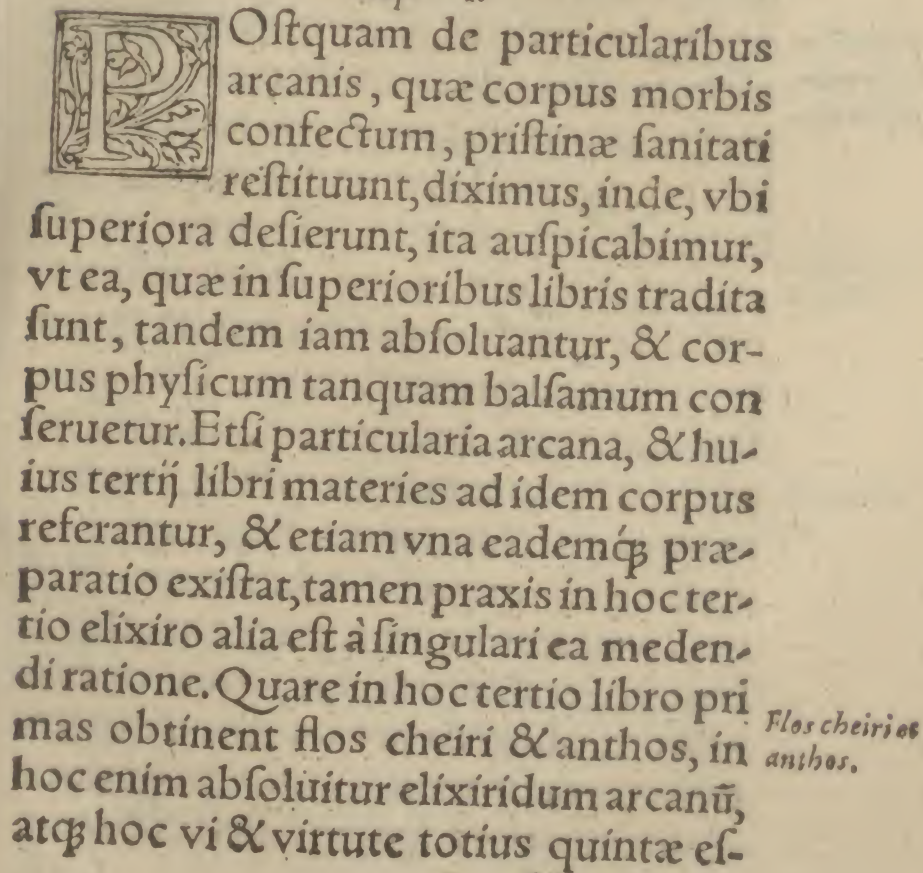 POſtquam de particularibus
arcanis, quæ corpus morbis
confectum, priſtinæ ſanitati
reſtituunt, diximus, inde, vbi
ſuperiora deſierunt, ita auſpicabimur,
vt ea, quæ in ſuperioribus libris tradita
ſunt, tandem iam abſoluantur, & cor-
pus phyſicum tanquam balſamum con
ſeruetur. Etſi particularia arcana, & hu-
ius tertij libri materies ad idem corpus
referantur, & etiam vna eademq́ꝫ præ-
paratio exiſtat, tamen praxis in hoc ter-
tio elixiro alia eſt à ſingulari ea meden-
di ratione. Quare in hoc tertio libro pri
mas obtinent flos cheiri & anthos, in
hoc enim abſoluitur elixiridum arcanū,
atqꝫ hoc vi & virtute totius quintæ eſ-
Flos cheiri et
anthos.